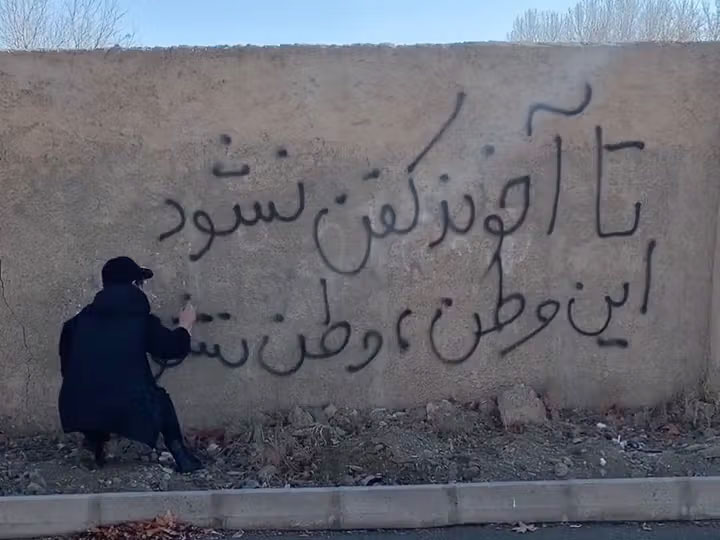 تا آخوند کفن نشود
این وطن، وطن